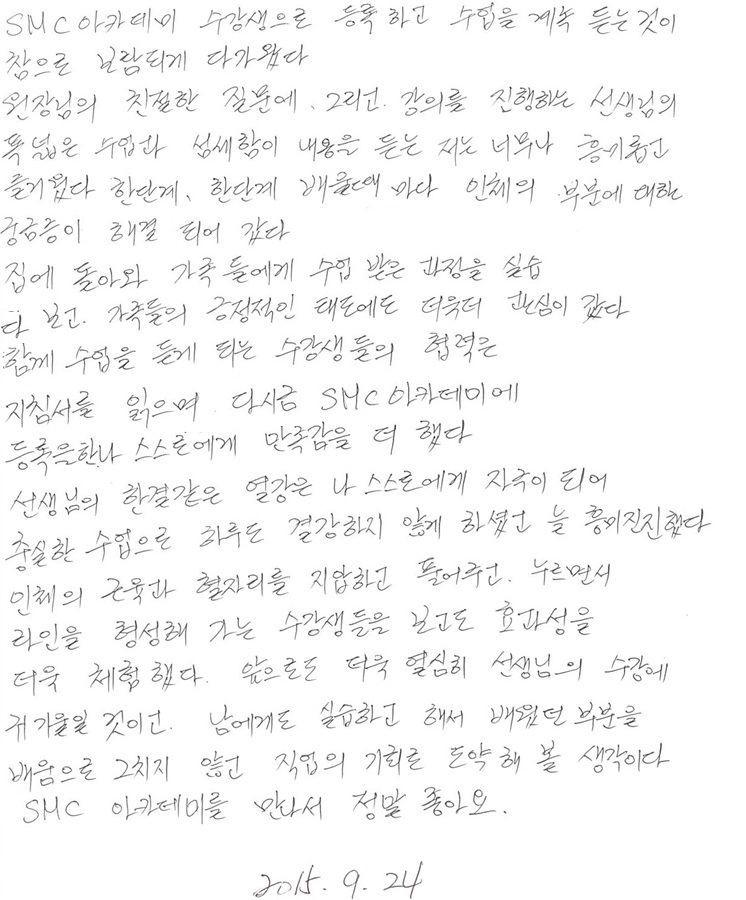 SMC 아카데미 수강생으로 등록하고 수업을 계속 듣는것이
참으로 보람되게 다가왔다
원장님의 친절한 질문에. 그리고. 강의를 진행하는 선생님의
폭넓은 수업과 섬세함이 내용을 듣는 저는 너무나 흥미롭고
즐거웠다 한단계, 한단계 배울때마다 인체의 부분에 대한
궁금증이 해결 되어 갔다
집에 돌아와 가족들에게 수업 받은 과정을 실습
다 보고. 가족들의 긍정적인 태도에도 더욱더 관심이 갔다
함께 수업을 듣게 되는 수강생들의 협력은
지침서를 읽으며 다시금 SMC 아카데미에
등록을한나 스스로에게 만족감을 더 했다
선생님의 한결같은 열강은 나 스스로에게 자극이 되어
충실한 수업으로 하루도 결강하지 않게 하셨고 늘 흥미진진했다
인체의 근육과 혈자리를 지압하고 풀어주고. 누르면서
라인을 형성해 가는 수강생들을 보고도 효과성을
더욱 체험했다. 앞으로도 더욱 열심히 선생님의 수강에
귀 기울일 것이고. 남에게도 실습하고 해서 배웠던 부분을
배움으로 그치지 않고 직업의 기회로 도약해 볼 생각이다
SMC 아카데미를 만나서 정말 좋아요.
2015. 9. 24